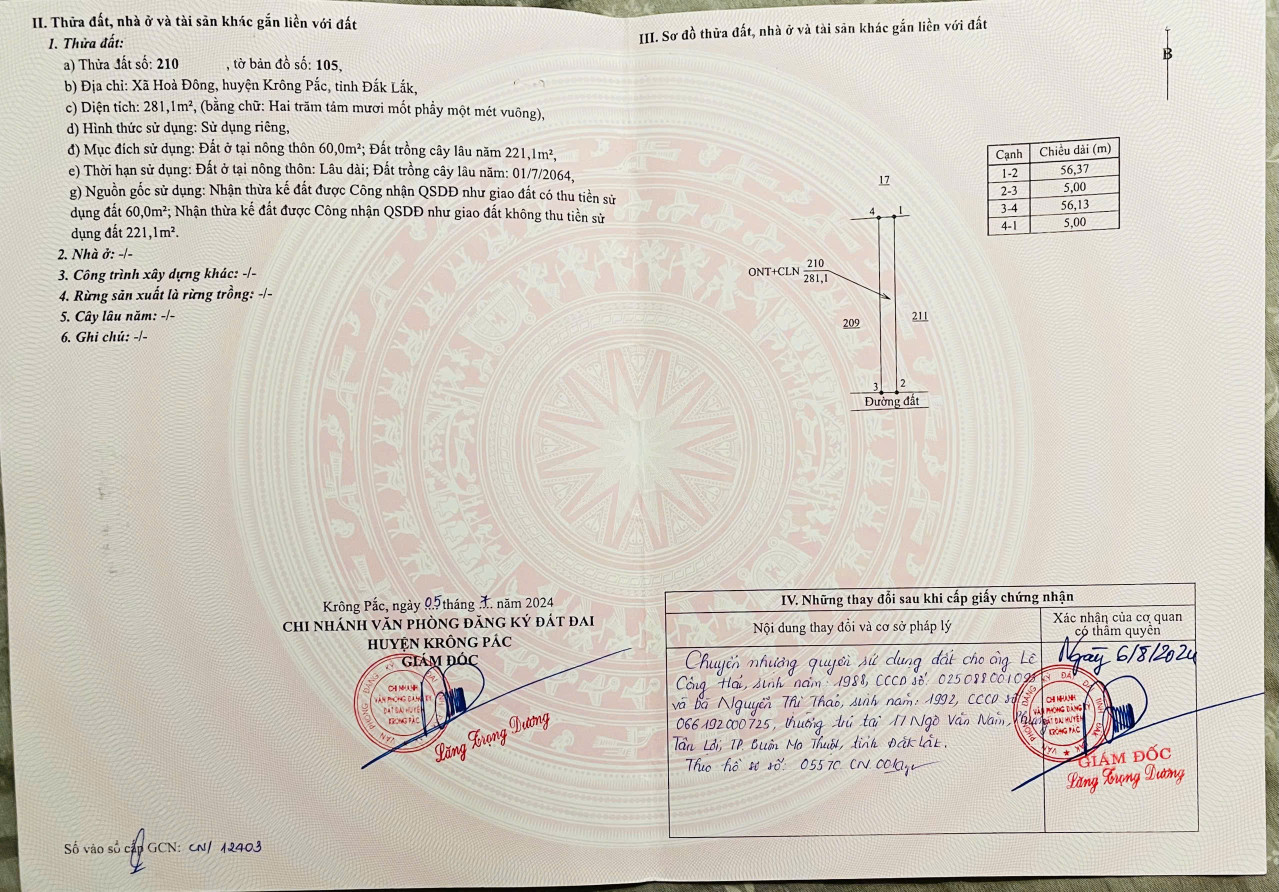 II. Thửa đất, nhà ở và tài sản khác gắn liền với đất
1. Thửa đất:
a) Thửa đất số: 210 , tờ bản đồ số: 105,
b) Địa chỉ: Xã Hoà Đông, huyện Krông Pắc, tỉnh Đắk Lắk,
c) Diện tích: 281,1m², (bằng chữ: Hai trăm tám mươi mốt phẩy một mét vuông),
d) Hình thức sử dụng: Sử dụng riêng,
đ) Mục đích sử dụng: Đất ở tại nông thôn 60,0m²; Đất trồng cây lâu năm 221,1m²,
e) Thời hạn sử dụng: Đất ở tại nông thôn: Lâu dài; Đất trồng cây lâu năm: 01/7/2064,
g) Nguồn gốc sử dụng: Nhận thừa kế đất được Công nhận QSDĐ như giao đất có thu tiền sử
dụng đất 60,0m²; Nhận thừa kế đất được Công nhận QSDĐ như giao đất không thu tiền sử
dụng đất 221,1m².
2. Nhà ở: -/-
3. Công trình xây dựng khác: -/-
4. Rừng sản xuất là rừng trồng: -/-
5. Cây lâu năm: -/-
6. Ghi chú: -/-
Krông Pắc, ngày 05 tháng 7. năm 2024
CHI NHÁNH VĂN PHÒNG ĐĂNG KÝ ĐẤT ĐAI
HUYỆN KRÔNG PẮC
GIÁM ĐỐC
CHI NHÁNH
VĂN PHÒNG ĐĂNG KÝ
ĐẤT ĐAI HUYỆN
KRÔNG PẮC
Lăng Trọng Dương
Số vào sổ cấp GCN: CN/ 12403
III. Sơ đồ thửa đất, nhà ở và tài sản khác gắn liền với đất
B
Cạnh Chiều dài (m)
1-2 56,37
2-3 5,00
3-4 56,13
4-1 5,00
17
4 1
ONT+CLN 210
281,1
209
211
3 2
Đường đất
IV. Những thay đổi sau khi cấp giấy chứng nhận
Nội dung thay đổi và cơ sở pháp lý
Xác nhận của cơ quan
có thẩm quyền
Chuyển nhượng quyền sử dụng đất cho ông Lê
Công Hai, sinh năm: 1988, CCCD số: 025088001093
và bà Nguyễn Thị Thảo, sinh năm: 1992, CCCD số
066192000725, thường trú tại 17 Ngô Văn Năm, Phường
Tân Lợi, TP. Buôn Ma Thuột, tỉnh Đắk Lắk.
Theo hồ sơ số: 05570. CN.
Ngày 6/8/2024
CHI NHÁNH
VĂN PHÒNG ĐĂNG KÝ
ĐẤT ĐAI HUYỆN
KRÔNG PẮC
GIÁM ĐỐC
Lăng Trọng Dương